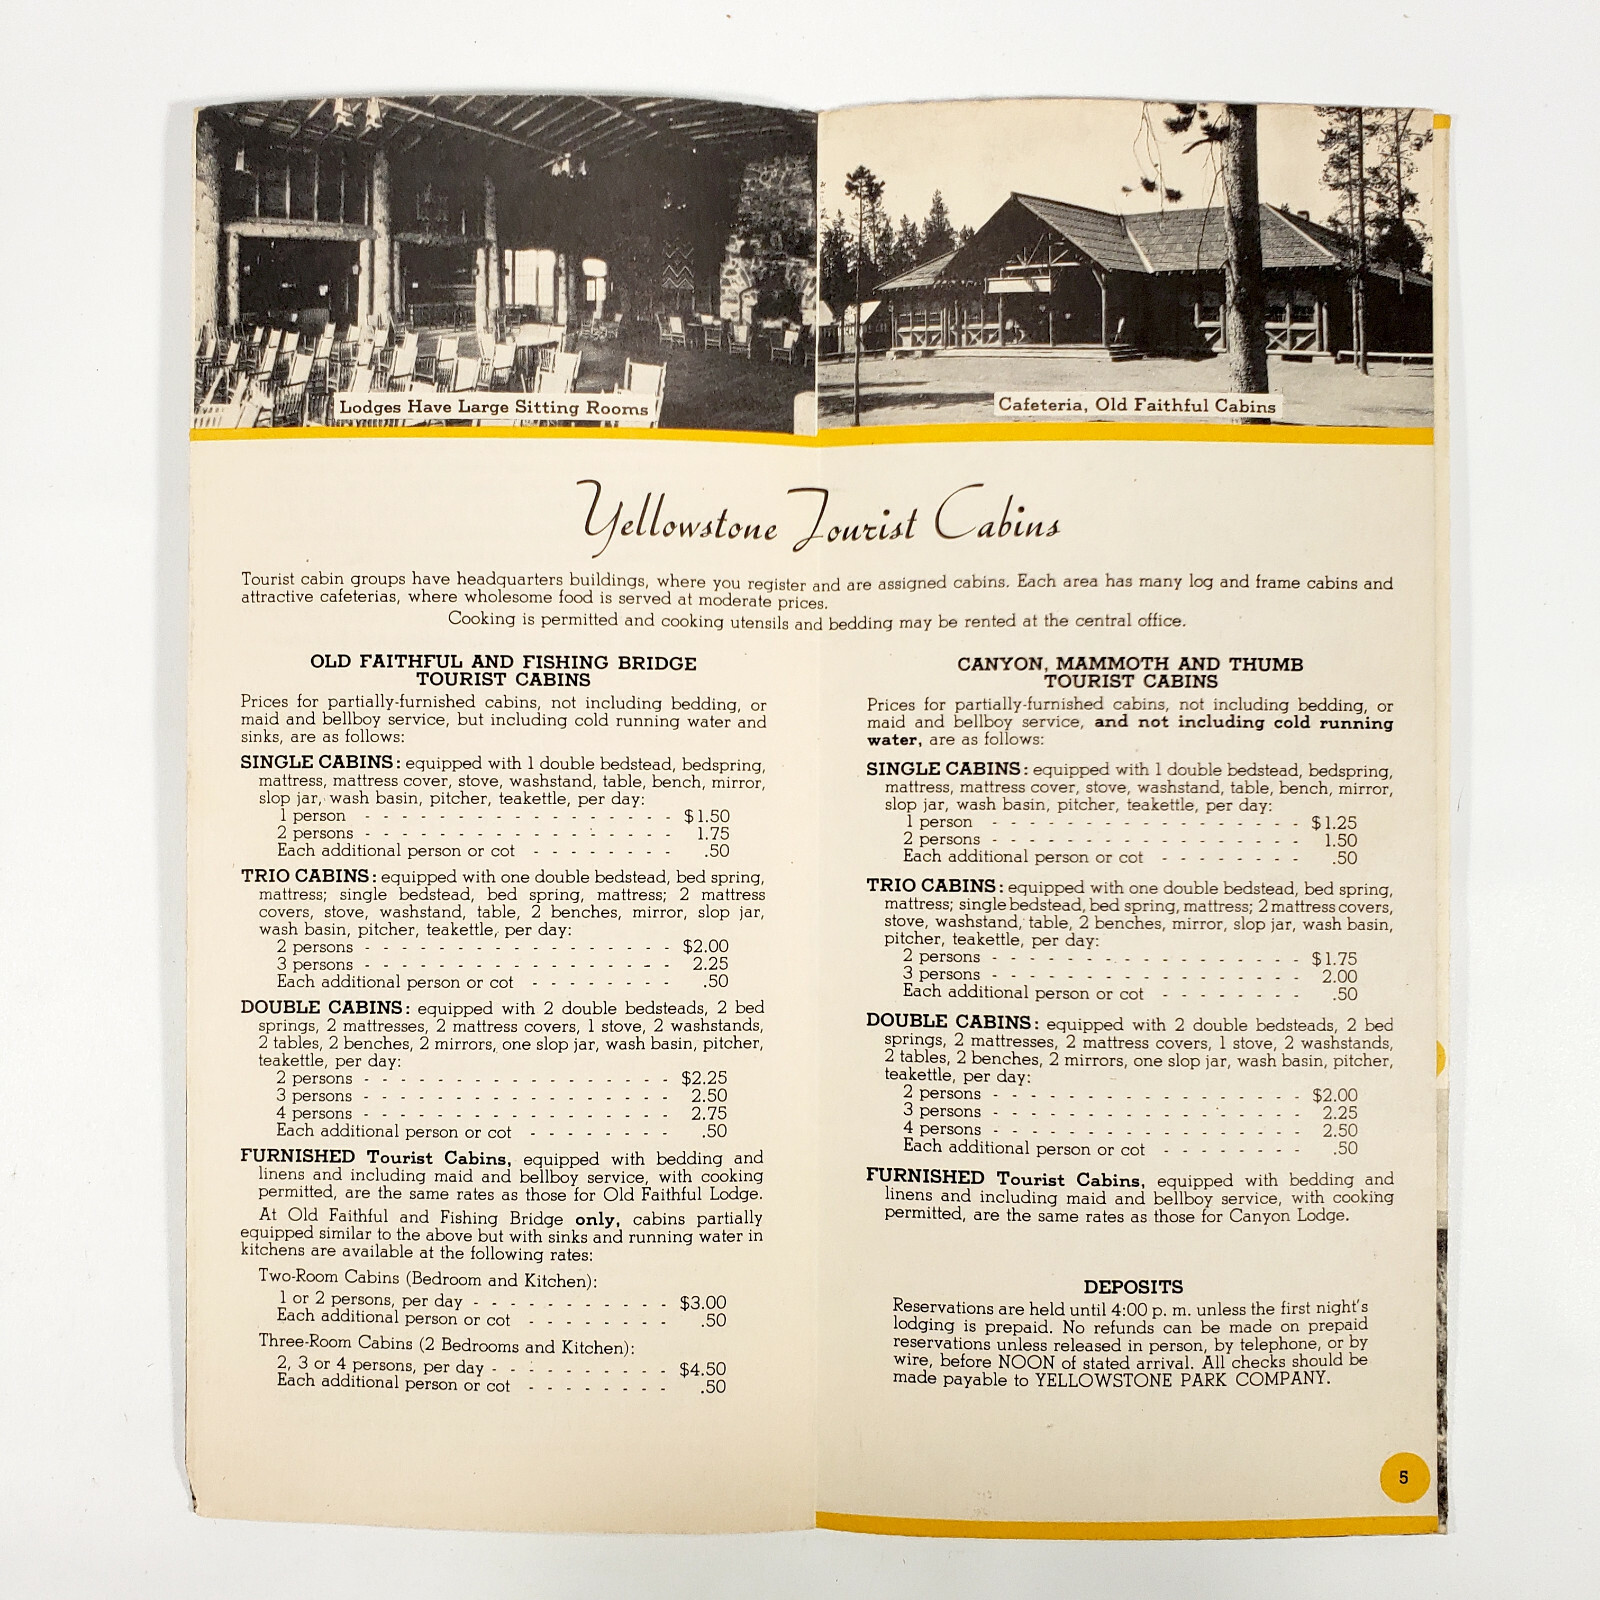 Lodges Have Large Sitting Rooms
Cafeteria, Old Faithful Cabins
Yellowstone Tourist Cabins
Tourist cabin groups have headquarters buildings, where you register and are assigned cabins. Each area has many log and frame cabins and
attractive cafeterias, where wholesome food is served at moderate prices.
Cooking is permitted and cooking utensils and bedding may be rented at the central office.
OLD FAITHFUL AND FISHING BRIDGE
TOURIST CABINS
Prices for partially-furnished cabins, not including bedding, or
maid and bellboy service, but including cold running water and
sinks, are as follows:
SINGLE CABINS: equipped with 1 double bedstead, bedspring,
mattress, mattress cover, stove, washstand, table, bench, mirror,
slop jar, wash basin, pitcher, teakettle, per day:
1 person - - - - - - - - - - - - - - - - - - $1.50
2 persons - - - - - - - - - - - - - - - - - 1.75
Each additional person or cot - - - - - - - - .50
TRIO CABINS: equipped with one double bedstead, bed spring,
mattress; single bedstead, bed spring, mattress; 2 mattress
covers, stove, washstand, table, 2 benches, mirror, slop jar,
wash basin, pitcher, teakettle, per day:
2 persons - - - - - - - - - - - - - - - - - $2.00
3 persons - - - - - - - - - - - - - - - - - 2.25
Each additional person or cot - - - - - - - - .50
DOUBLE CABINS: equipped with 2 double bedsteads, 2 bed
springs, 2 mattresses, 2 mattress covers, 1 stove, 2 washstands,
2 tables, 2 benches, 2 mirrors, one slop jar, wash basin, pitcher,
teakettle, per day:
2 persons - - - - - - - - - - - - - - - - - $2.25
3 persons - - - - - - - - - - - - - - - - - 2.50
4 persons - - - - - - - - - - - - - - - - - 2.75
Each additional person or cot - - - - - - - - .50
FURNISHED Tourist Cabins, equipped with bedding and
linens and including maid and bellboy service, with cooking
permitted, are the same rates as those for Old Faithful Lodge.
At Old Faithful and Fishing Bridge only, cabins partially
equipped similar to the above but with sinks and running water in
kitchens are available at the following rates:
Two-Room Cabins (Bedroom and Kitchen):
1 or 2 persons, per day - - - - - - - - - - - $3.00
Each additional person or cot - - - - - - - - .50
Three-Room Cabins (2 Bedrooms and Kitchen):
2, 3 or 4 persons, per day - - - - - - - - - - $4.50
Each additional person or cot - - - - - - - - .50
CANYON, MAMMOTH AND THUMB
TOURIST CABINS
Prices for partially-furnished cabins, not including bedding, or
maid and bellboy service, and not including cold running
water, are as follows:
SINGLE CABINS: equipped with 1 double bedstead, bedspring,
mattress, mattress cover, stove, washstand, table, bench, mirror,
slop jar, wash basin, pitcher, teakettle, per day:
1 person - - - - - - - - - - - - - - - - - - $1.25
2 persons - - - - - - - - - - - - - - - - - 1.50
Each additional person or cot - - - - - - - - .50
TRIO CABINS: equipped with one double bedstead, bed spring,
mattress; single bedstead, bed spring, mattress; 2 mattress covers,
stove, washstand, table, 2 benches, mirror, slop jar, wash basin,
pitcher, teakettle, per day:
2 persons - - - - - - - - - - - - - - - - - $1.75
3 persons - - - - - - - - - - - - - - - - - 2.00
Each additional person or cot - - - - - - - - .50
DOUBLE CABINS: equipped with 2 double bedsteads, 2 bed
springs, 2 mattresses, 2 mattress covers, 1 stove, 2 washstands,
2 tables, 2 benches, 2 mirrors, one slop jar, wash basin, pitcher,
teakettle, per day:
2 persons - - - - - - - - - - - - - - - - - $2.00
3 persons - - - - - - - - - - - - - - - - - 2.25
4 persons - - - - - - - - - - - - - - - - - 2.50
Each additional person or cot - - - - - - - - .50
FURNISHED Tourist Cabins, equipped with bedding and
linens and including maid and bellboy service, with cooking
permitted, are the same rates as those for Canyon Lodge.
DEPOSITS
Reservations are held until 4:00 p. m. unless the first night's
lodging is prepaid. No refunds can be made on prepaid
reservations unless released in person, by telephone, or by
wire, before NOON of stated arrival. All checks should be
made payable to YELLOWSTONE PARK COMPANY.
5